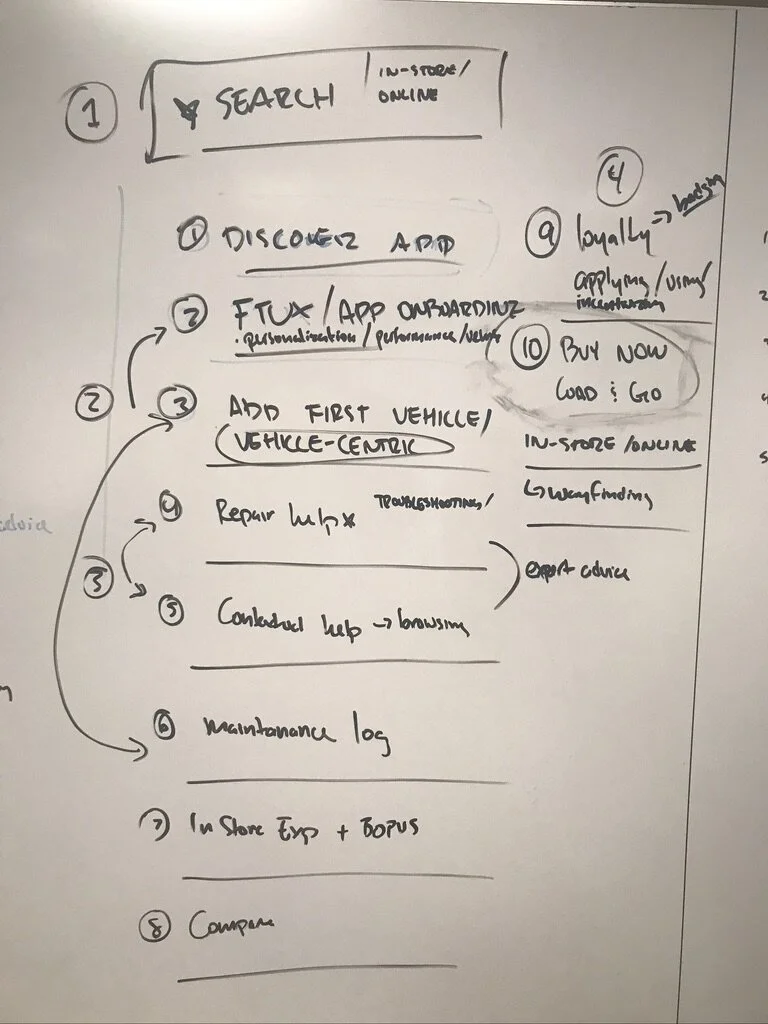 1
SEARCH
IN-STORE/
ONLINE
1 DISCOVER APP
2 FTUX / APP ONBOARDING
• personalization / performance /
2
3 ADD FIRST VEHICLE/
VEHICLE-CENTRIC
4 Repair help TROUBLESHOOTING/
3
5 Contextual help → browsing
6 Maintanance log
7 In Store Exp + BOPUS
8 Compare
4
9 loyalty →
applying / using /
incentivizing
10 BUY NOW
LOAD & GO
IN-STORE /ONLINE
↳ wayfinding
expert advice
advice